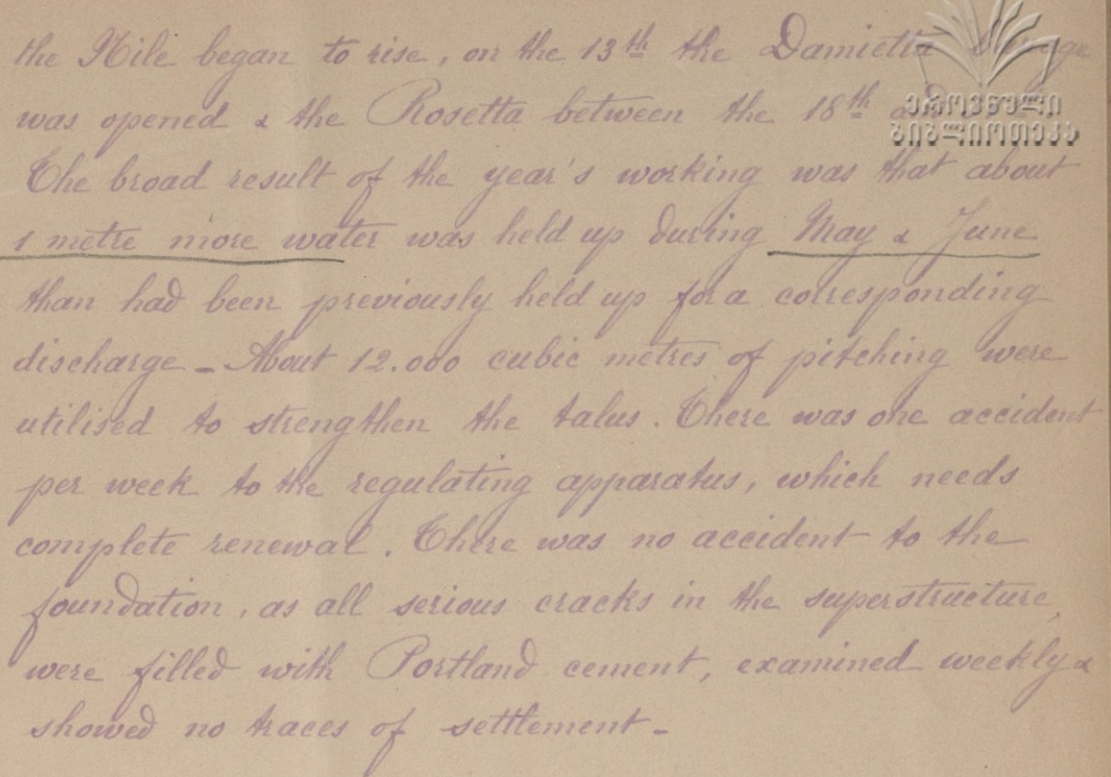 the Nile began to rise, on the 13th the Damietta
was opened & the Rosetta between the 18th
The broad result of the year's working was that about
1 metre more water was held up during May & June
than had been previously held up for a corresponding
discharge - About 12.000 cubic metres of pitching were
utilised to strengthen the talus. There was one accident
per week to the regulating apparatus, which needs
complete renewal. There was no accident to the
foundation, as all serious cracks in the superstructure,
were filled with Portland cement, examined weekly &
showed no traces of settlement -
ეროვნული
ბიბლიოთეკა